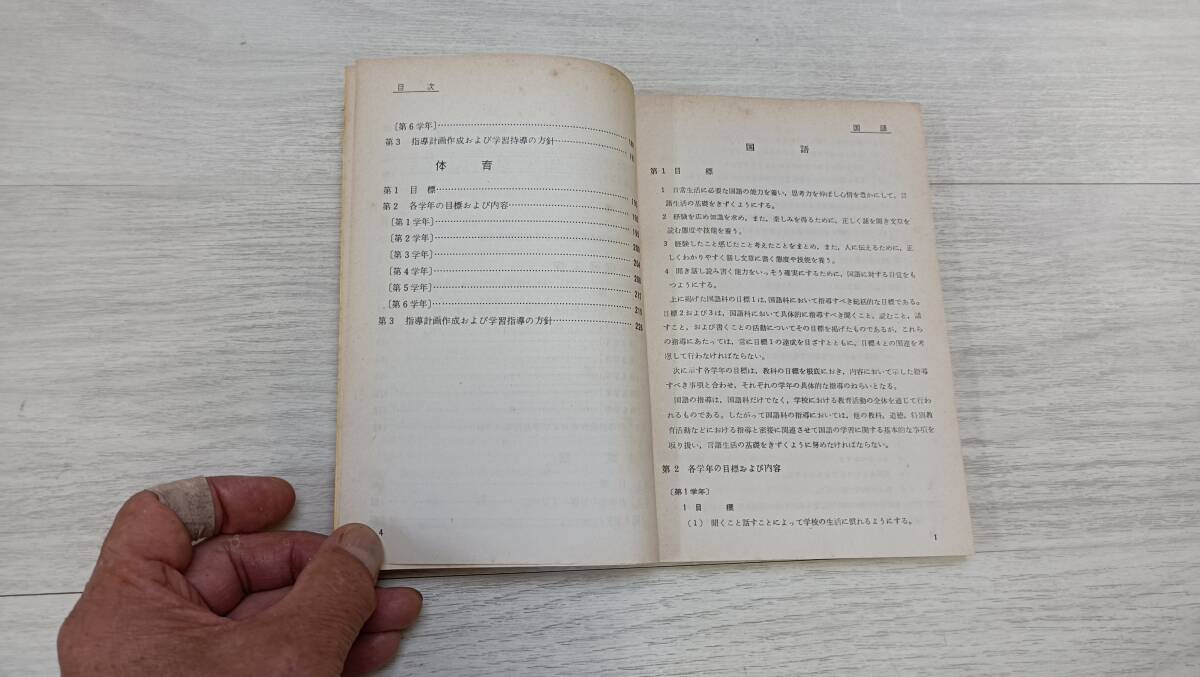 目次
〔第6学年〕
第3 指導計画作成および学習指導の方針
体育
第1 目標
第2 各学年の目標および内容
〔第1学年〕
〔第2学年〕
〔第3学年〕
〔第4学年〕
〔第5学年〕
〔第6学年〕
第3 指導計画作成および学習指導の方針
4
国語
国語
第1 目標
1 日常生活に必要な国語の能力を養い,思考力を伸ばし心情を豊かにして,言
語生活の基礎をきずくようにする。
2 経験を広め知識を求め,また,楽しみを得るために,正しく話を聞き文章を
読む態度や技能を養う。
3 経験したこと感じたこと考えたことをまとめ,また,人に伝えるために,正
しくわかりやすく話し文章に書く態度や技能を養う。
4 聞き話し読み書く能力をいっそう確実にするために,国語に対する自覚をも
つようにする。
上に掲げた国語科の目標1は,国語科において指導すべき総括的な目標である。
目標2および3は,国語科において具体的に指導すべき聞くこと,読むこと,話
すこと,および書くことの活動についてその目標を掲げたものであるが,これら
の指導にあたっては,常に目標1の達成を目ざすとともに,目標4との関連を考
慮して行わなければならない。
次に示す各学年の目標は,教科の目標を根底におき,内容において示した指導
すべき事項と合わせ,それぞれの学年の具体的な指導のねらいとなる。
国語の指導は,国語科だけでなく,学校における教育活動の全体を通じて行わ
れるものである。したがって国語科の指導においては,他の教科,道徳,特別教
育活動などにおける指導と密接に関連させて国語の学習に関する基本的な事項を
取り扱い,言語生活の基礎をきずくように努めなければならない。
第2 各学年の目標および内容
〔第1学年〕
1 目標
(1) 聞くこと話すことによって学校の生活に慣れるようにする。
1